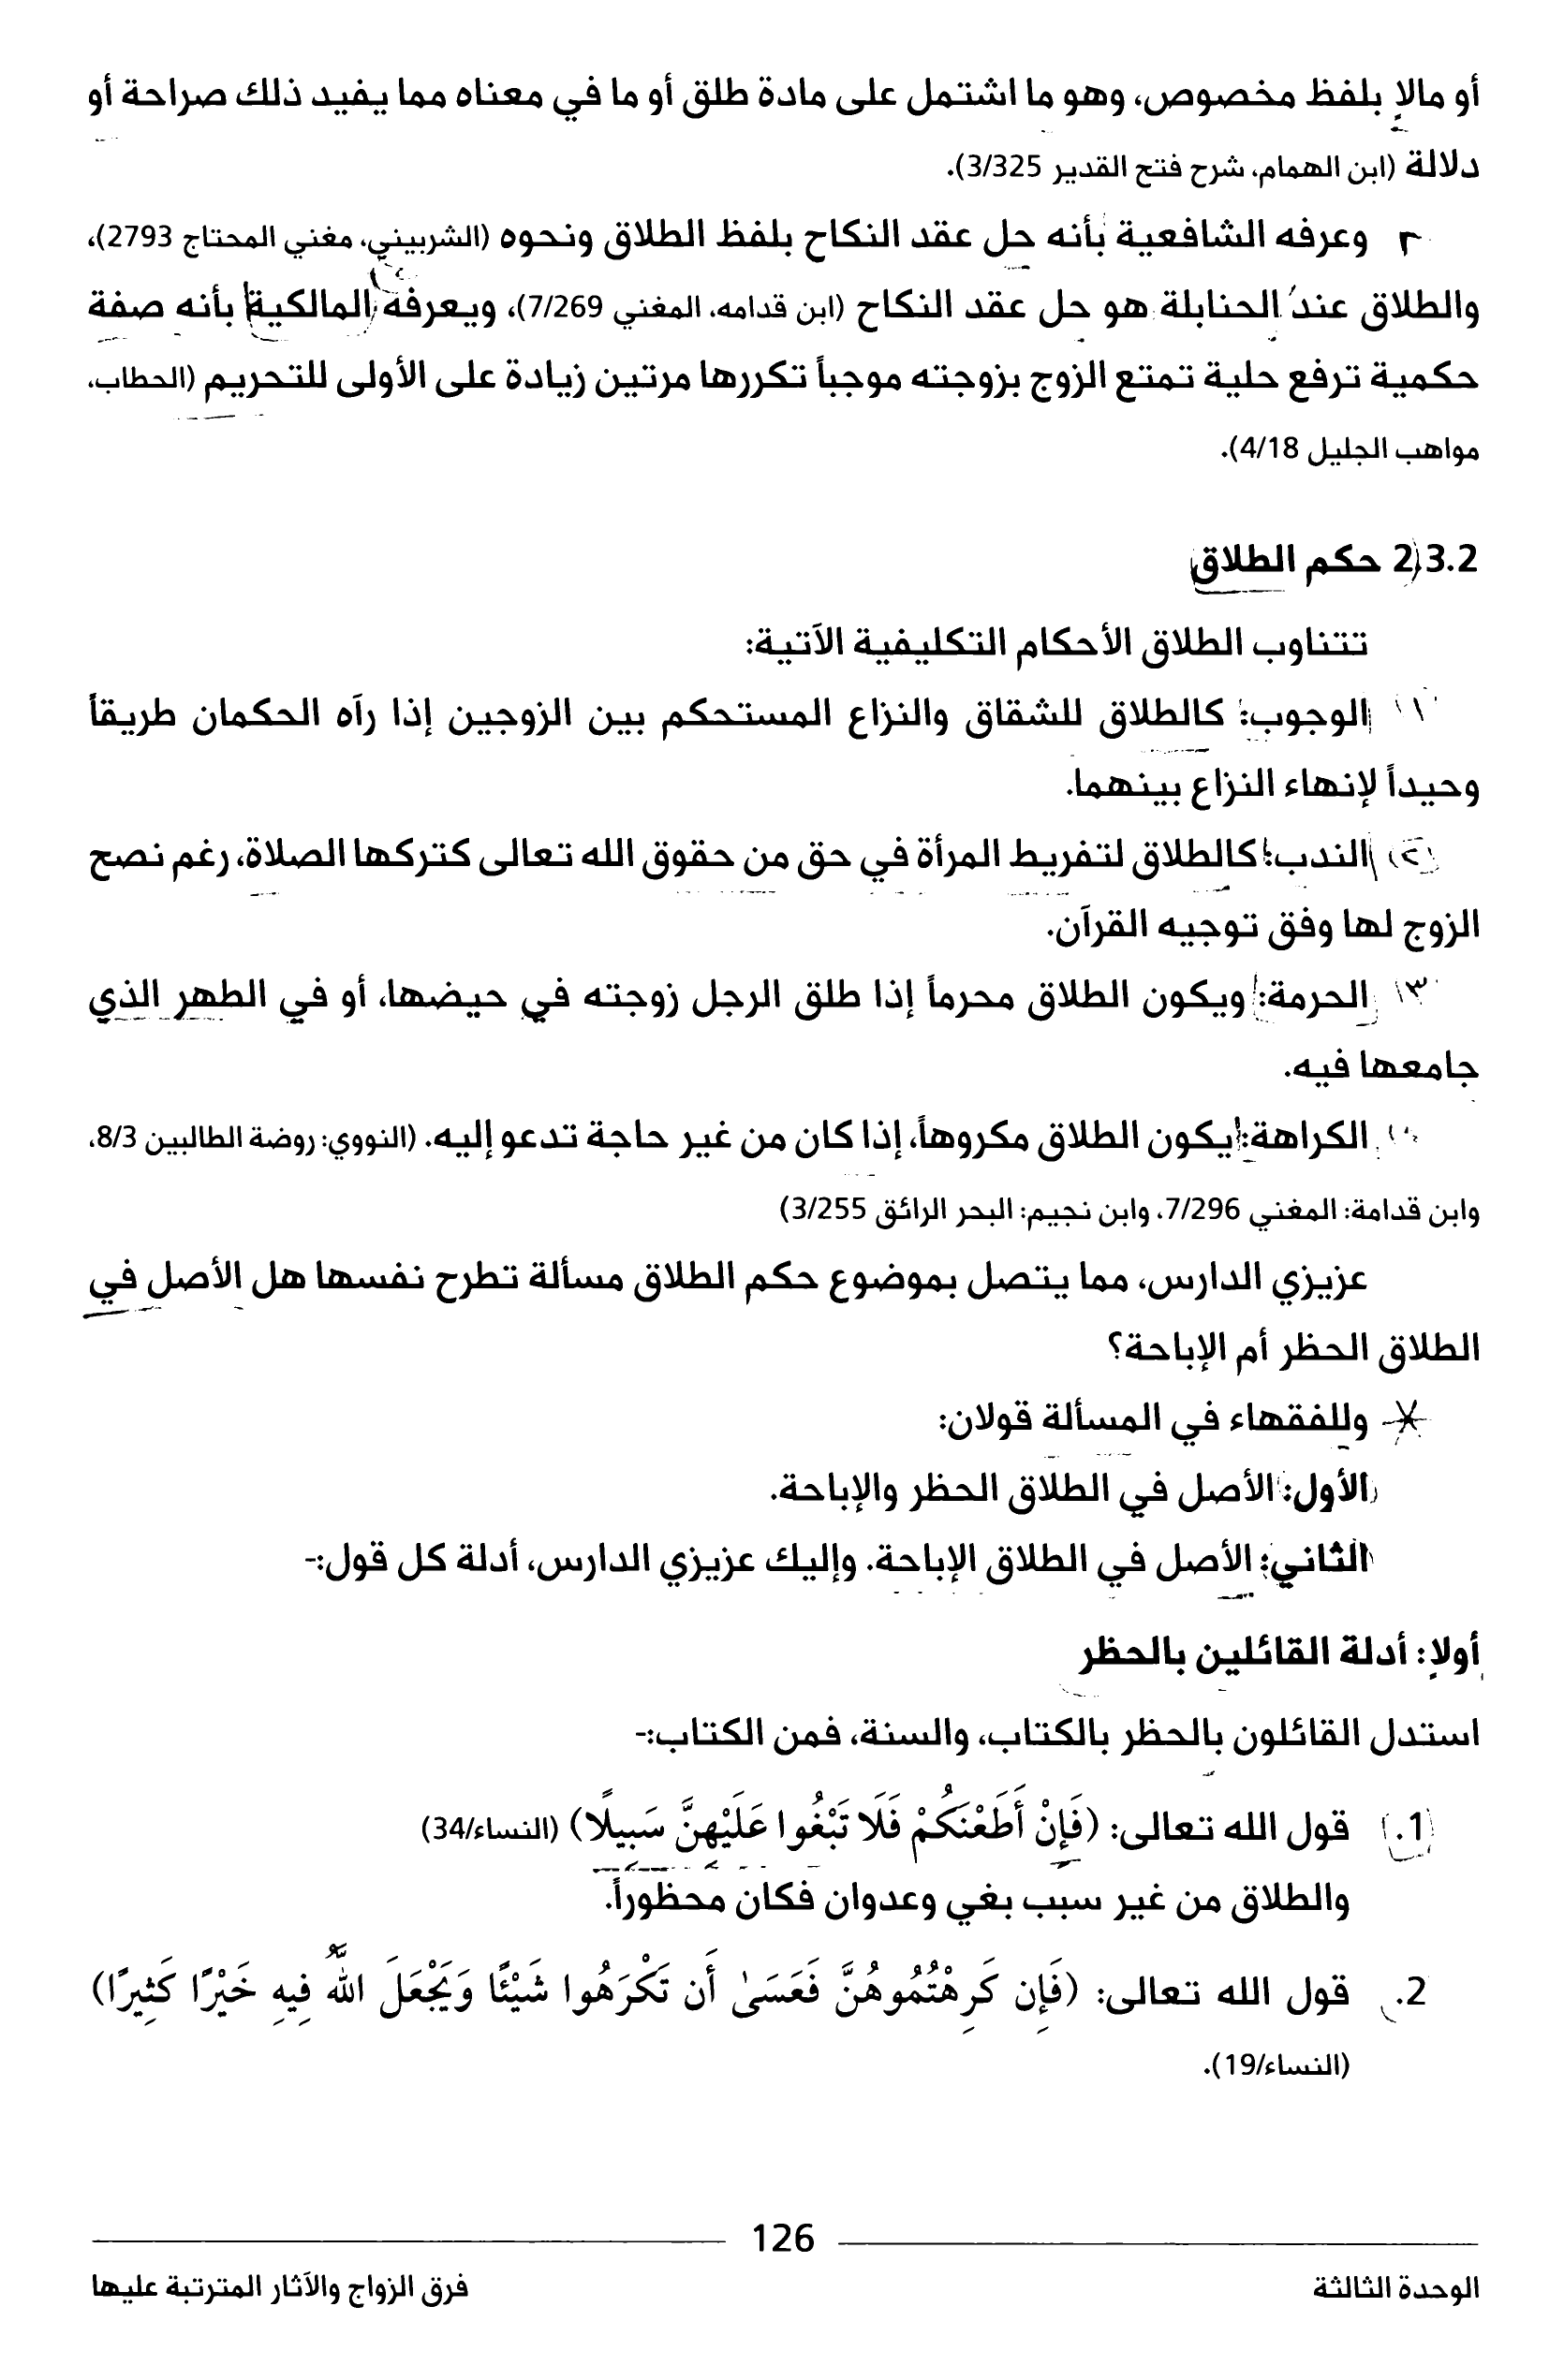 أو مالاٍ بلفظ مخصوص، وهو ما اشتمل على مادة طلق أو ما في معناه مما يفيد ذلك صراحة أو
دلالة (ابن الهمام، شرح فتح القدير 3/325).
٢ وعرفه الشافعية بأنه حل عقد النكاح بلفظ الطلاق ونحوه (الشربيني، مغني المحتاج 2793)،
والطلاق عند الحنابلة هو حل عقد النكاح (ابن قدامه، المغني 7/269)، ويعرفه المالكية بأنه صفة
حكمية ترفع حلية تمتع الزوج بزوجته موجباً تكررها مرتين زيادة على الأولى للتحريم (الحطاب،
مواهب الجليل 4/18).
2.3.2 حكم الطلاق
تتناوب الطلاق الأحكام التكليفية الآتية:
١ الوجوب: كالطلاق للشقاق والنزاع المستحكم بين الزوجين إذا رآه الحكمان طريقاً
وحيداً لإنهاء النزاع بينهما.
(٢) الندب: كالطلاق لتفريط المرأة في حق من حقوق الله تعالى كتركها الصلاة، رغم نصح
الزوج لها وفق توجيه القرآن.
٣ الحرمة: ويكون الطلاق محرماً إذا طلق الرجل زوجته في حيضها، أو في الطهر الذي
جامعها فيه.
الكراهة: يكون الطلاق مكروهاً، إذا كان من غير حاجة تدعو إليه. (النووي: روضة الطالبين 8/3،
وابن قدامة: المغني 7/296، وابن نجيم: البحر الرائق 3/255)
عزيزي الدارس، مما يتصل بموضوع حكم الطلاق مسألة تطرح نفسها هل الأصل في
الطلاق الحظر أم الإباحة؟
* وللفقهاء في المسألة قولان:
الأول: الأصل في الطلاق الحظر والإباحة.
الثاني: الأصل في الطلاق الإباحة. وإليك عزيزي الدارس، أدلة كل قول:-
أولاٍ: أدلة القائلين بالحظر
استدل القائلون بالحظر بالكتاب، والسنة، فمن الكتاب:-
1. قول الله تعالى: (فَإِنْ أَطَعْنَكُمْ فَلَا تَبْغُوا عَلَيْهِنَّ سَبِيلًا) (النساء/34)
والطلاق من غير سبب بغي وعدوان فكان محظوراً.
2. قول الله تعالى: (فَإِن كَرِهْتُمُوهُنَّ فَعَسَىٰ أَن تَكْرَهُوا شَيْئًا وَيَجْعَلَ اللَّهُ فِيهِ خَيْرًا كَثِيرًا)
(النساء/19).
126
الوحدة الثالثة
فرق الزواج والآثار المترتبة عليها